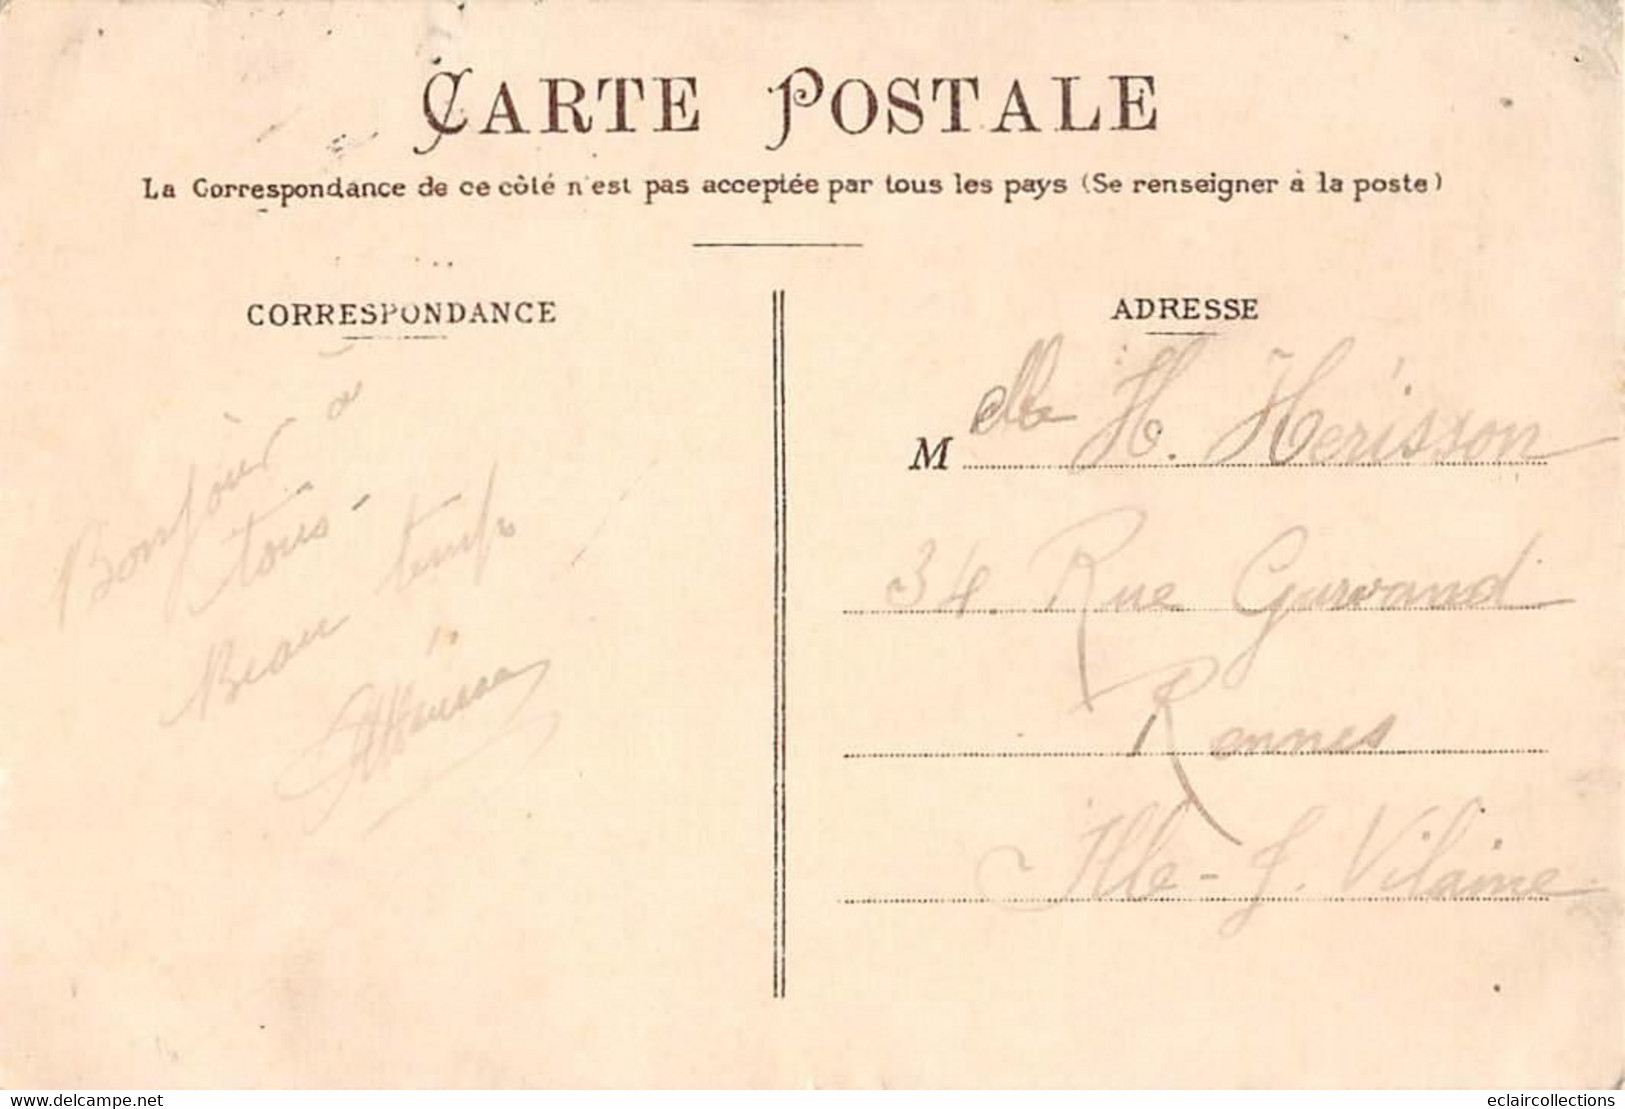 CARTE POSTALE
La Correspondance de ce côté n'est pas acceptée par tous les pays (Se renseigner à la poste)
CORRESPONDANCE
Bonjour à
tous -
Beau temps
ADRESSE
M elle H. Hérisson
34. Rue Gurvand
Rennes
Ille-&. Vilaine
www.delcampe.net
eclaircollections